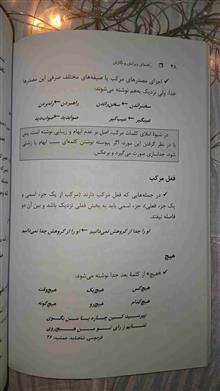 ۴۸ راهنمای ویرایش و نگارش
✓ اجزای مصدرهای مرکب یا صیغه‌های مختلف صرفی این مصدرها
جدا، ولی نزدیک به هم نوشته می‌شوند.
سخنراندن ← سخن‌راندن راهبردن ← راه‌بردن
عیبگیر ← عیب‌گیر صوابدید ← صواب‌دید
در شیوهٔ املای کلمات مرکب، اصل بر عدم ابهام و زیبایی نوشته است پس
با در نظر گرفتن این مورد، اگر پیوسته نوشتن کلمه‌ای سبب ابهام یا زشتی
شود، جداسازی صورت می‌گیرد و برعکس.
فعل مرکب
✓ در جمله‌هایی که فعل مرکب دارند (مرکب از یک جزء اسمی و
یک جزء فعلی)، جزء اسمی باید به بخش فعلی نزدیک باشد و بین آن دو
فاصله نیفتد.
او را جدا از گروهش نمی‌دانیم ← او را از گروهش جدا نمی‌دانیم
هیچ
✓ «هیچ» از کلمهٔ بعد جدا نوشته می‌شود:
هیچ‌کس هیچ‌یک هیچ‌وقت
هیچ‌کدام هیچ‌رو هیچ‌گونه
بپرسید کین چاره با من بگوی
نتابم ز رای تو من هیچ‌روی
فردوسی شاهنامه، جمشید: ۳۶